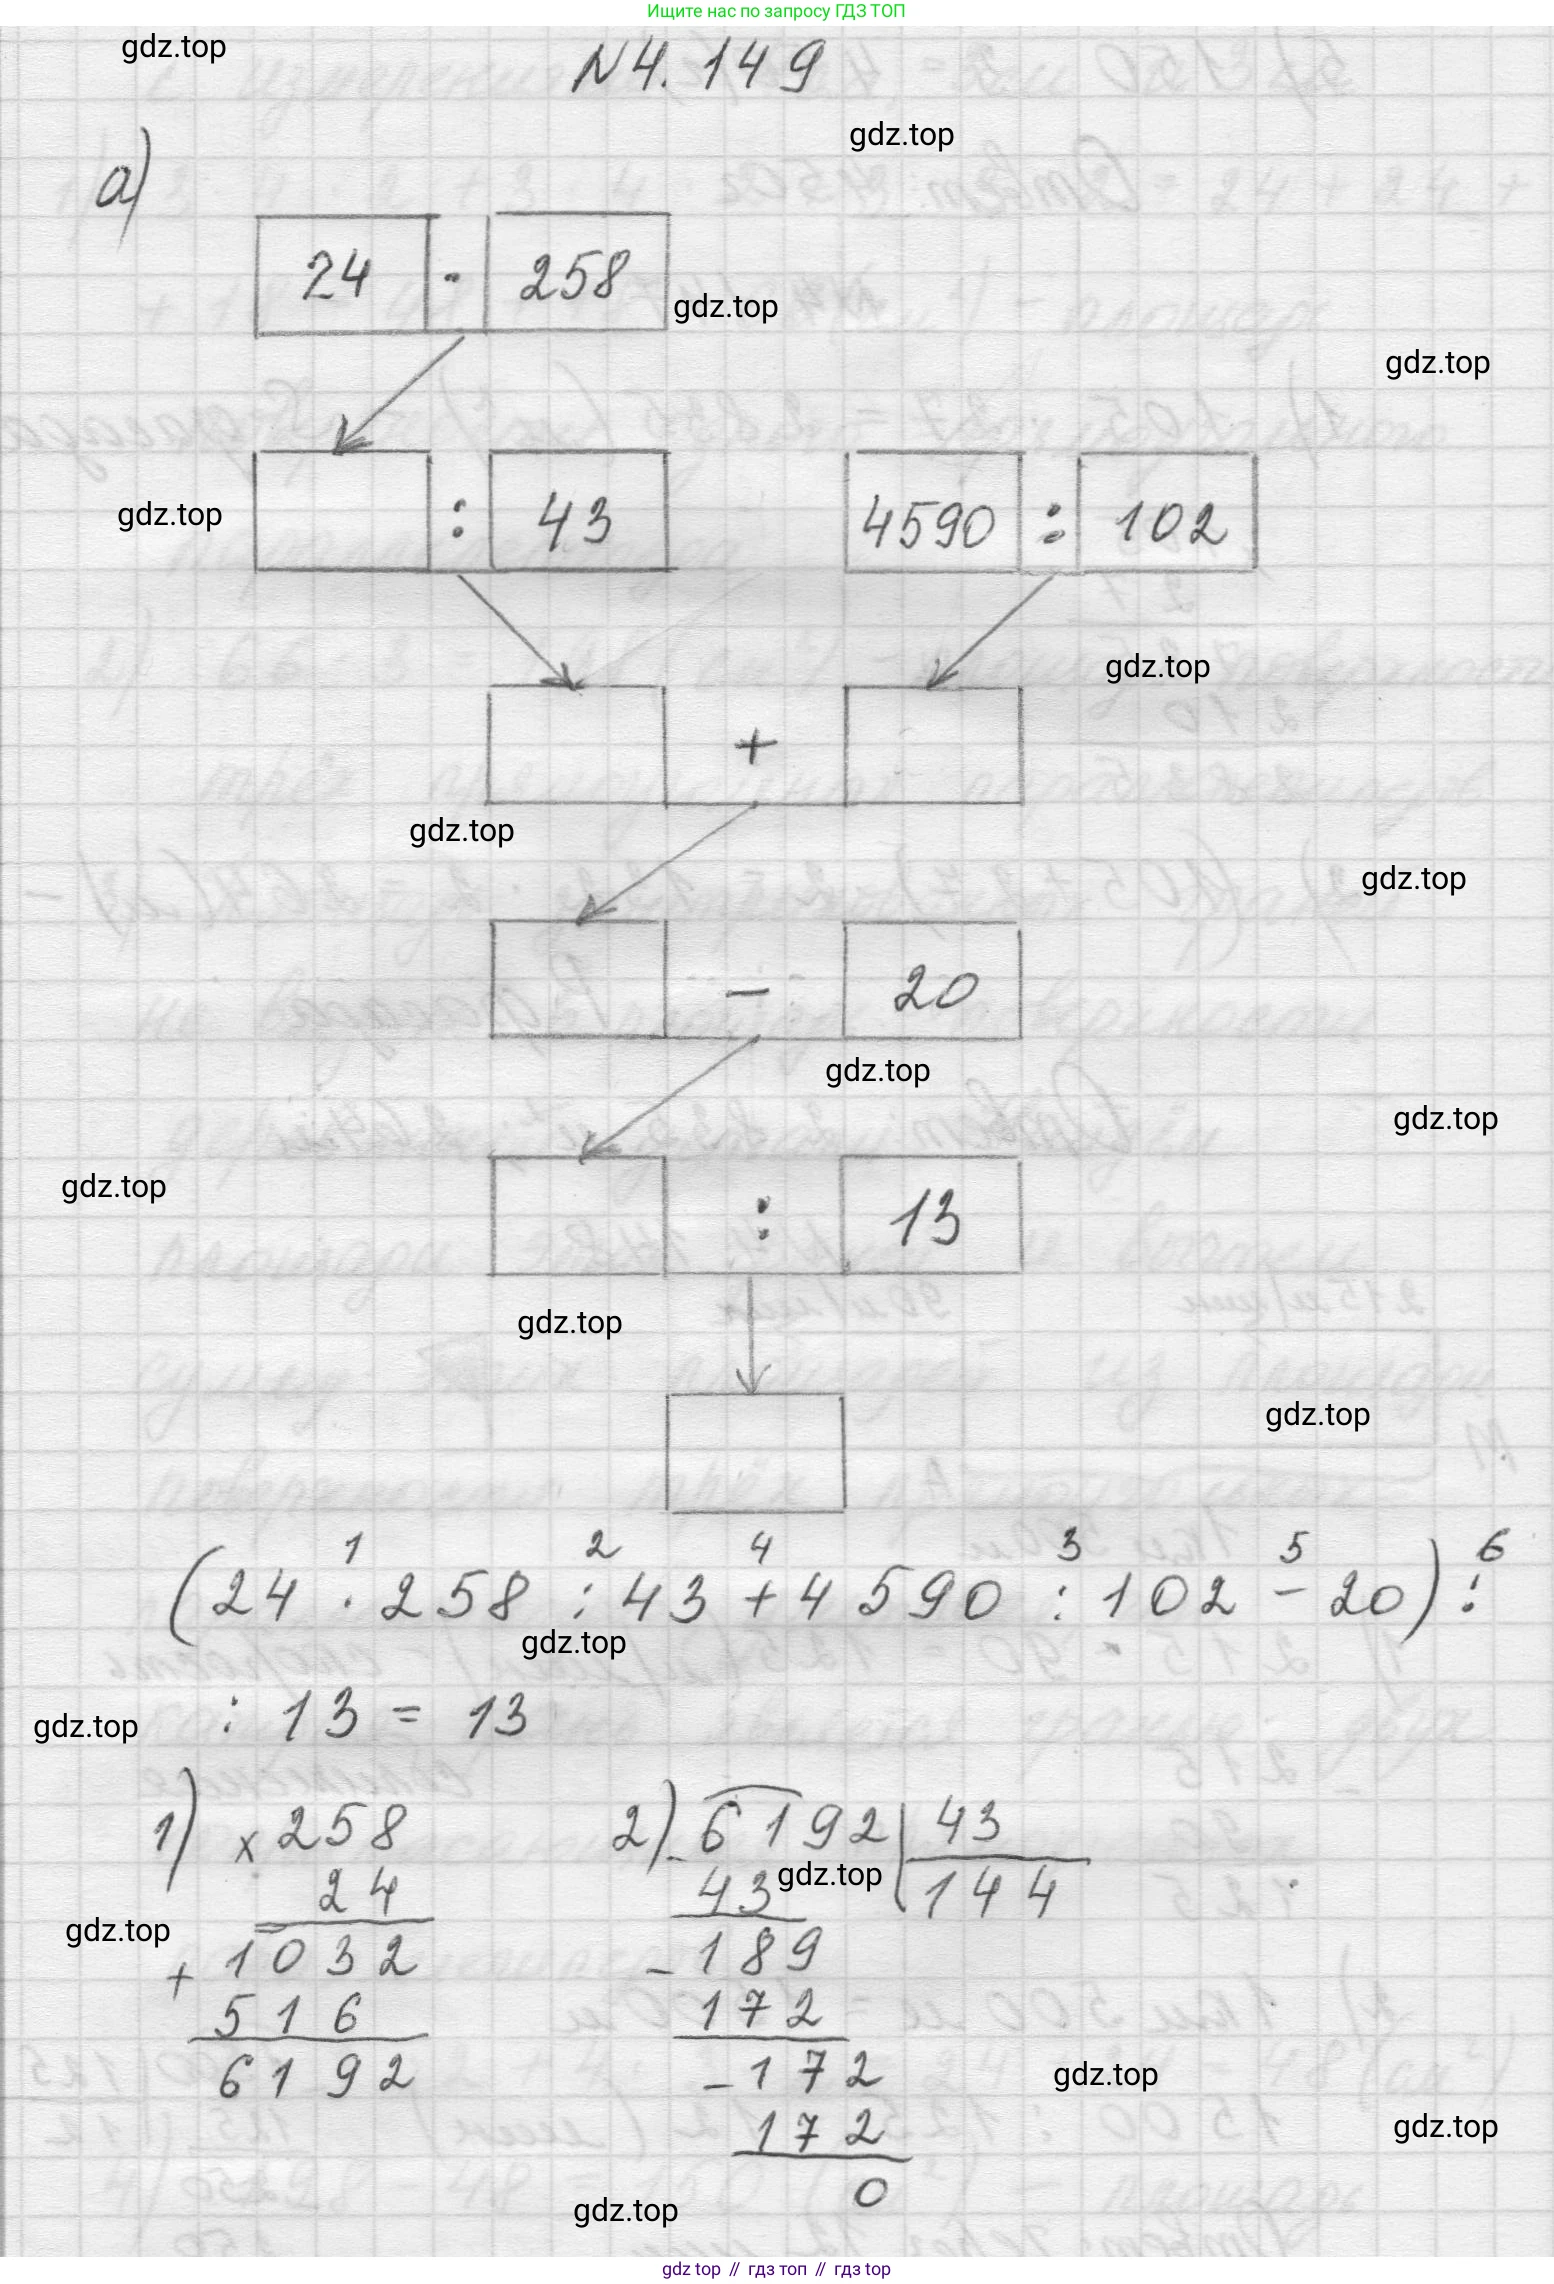 Ищите нас по запросу ГДЗ ТОП
gdz.top
N4.149
gdz.top
а)
24 · 258
gdz.top
gdz.top
: 43
4590 : 102
gdz.top
gdz.top
+
gdz.top
gdz.top
− 20
gdz.top
gdz.top
gdz.top
: 13
gdz.top
gdz.top
1 2 4 3 5 6
(24 · 258 : 43 + 4590 : 102 − 20) :
gdz.top
: 13 = 13
gdz.top
1) × 258
24
+ 1032
516
6192
gdz.top
2) − 6192 | 43
43
144
gdz.top
− 189
172
− 172
172
0
gdz.top
gdz.top
gdz.top
gdz top // гдз топ // гдз top